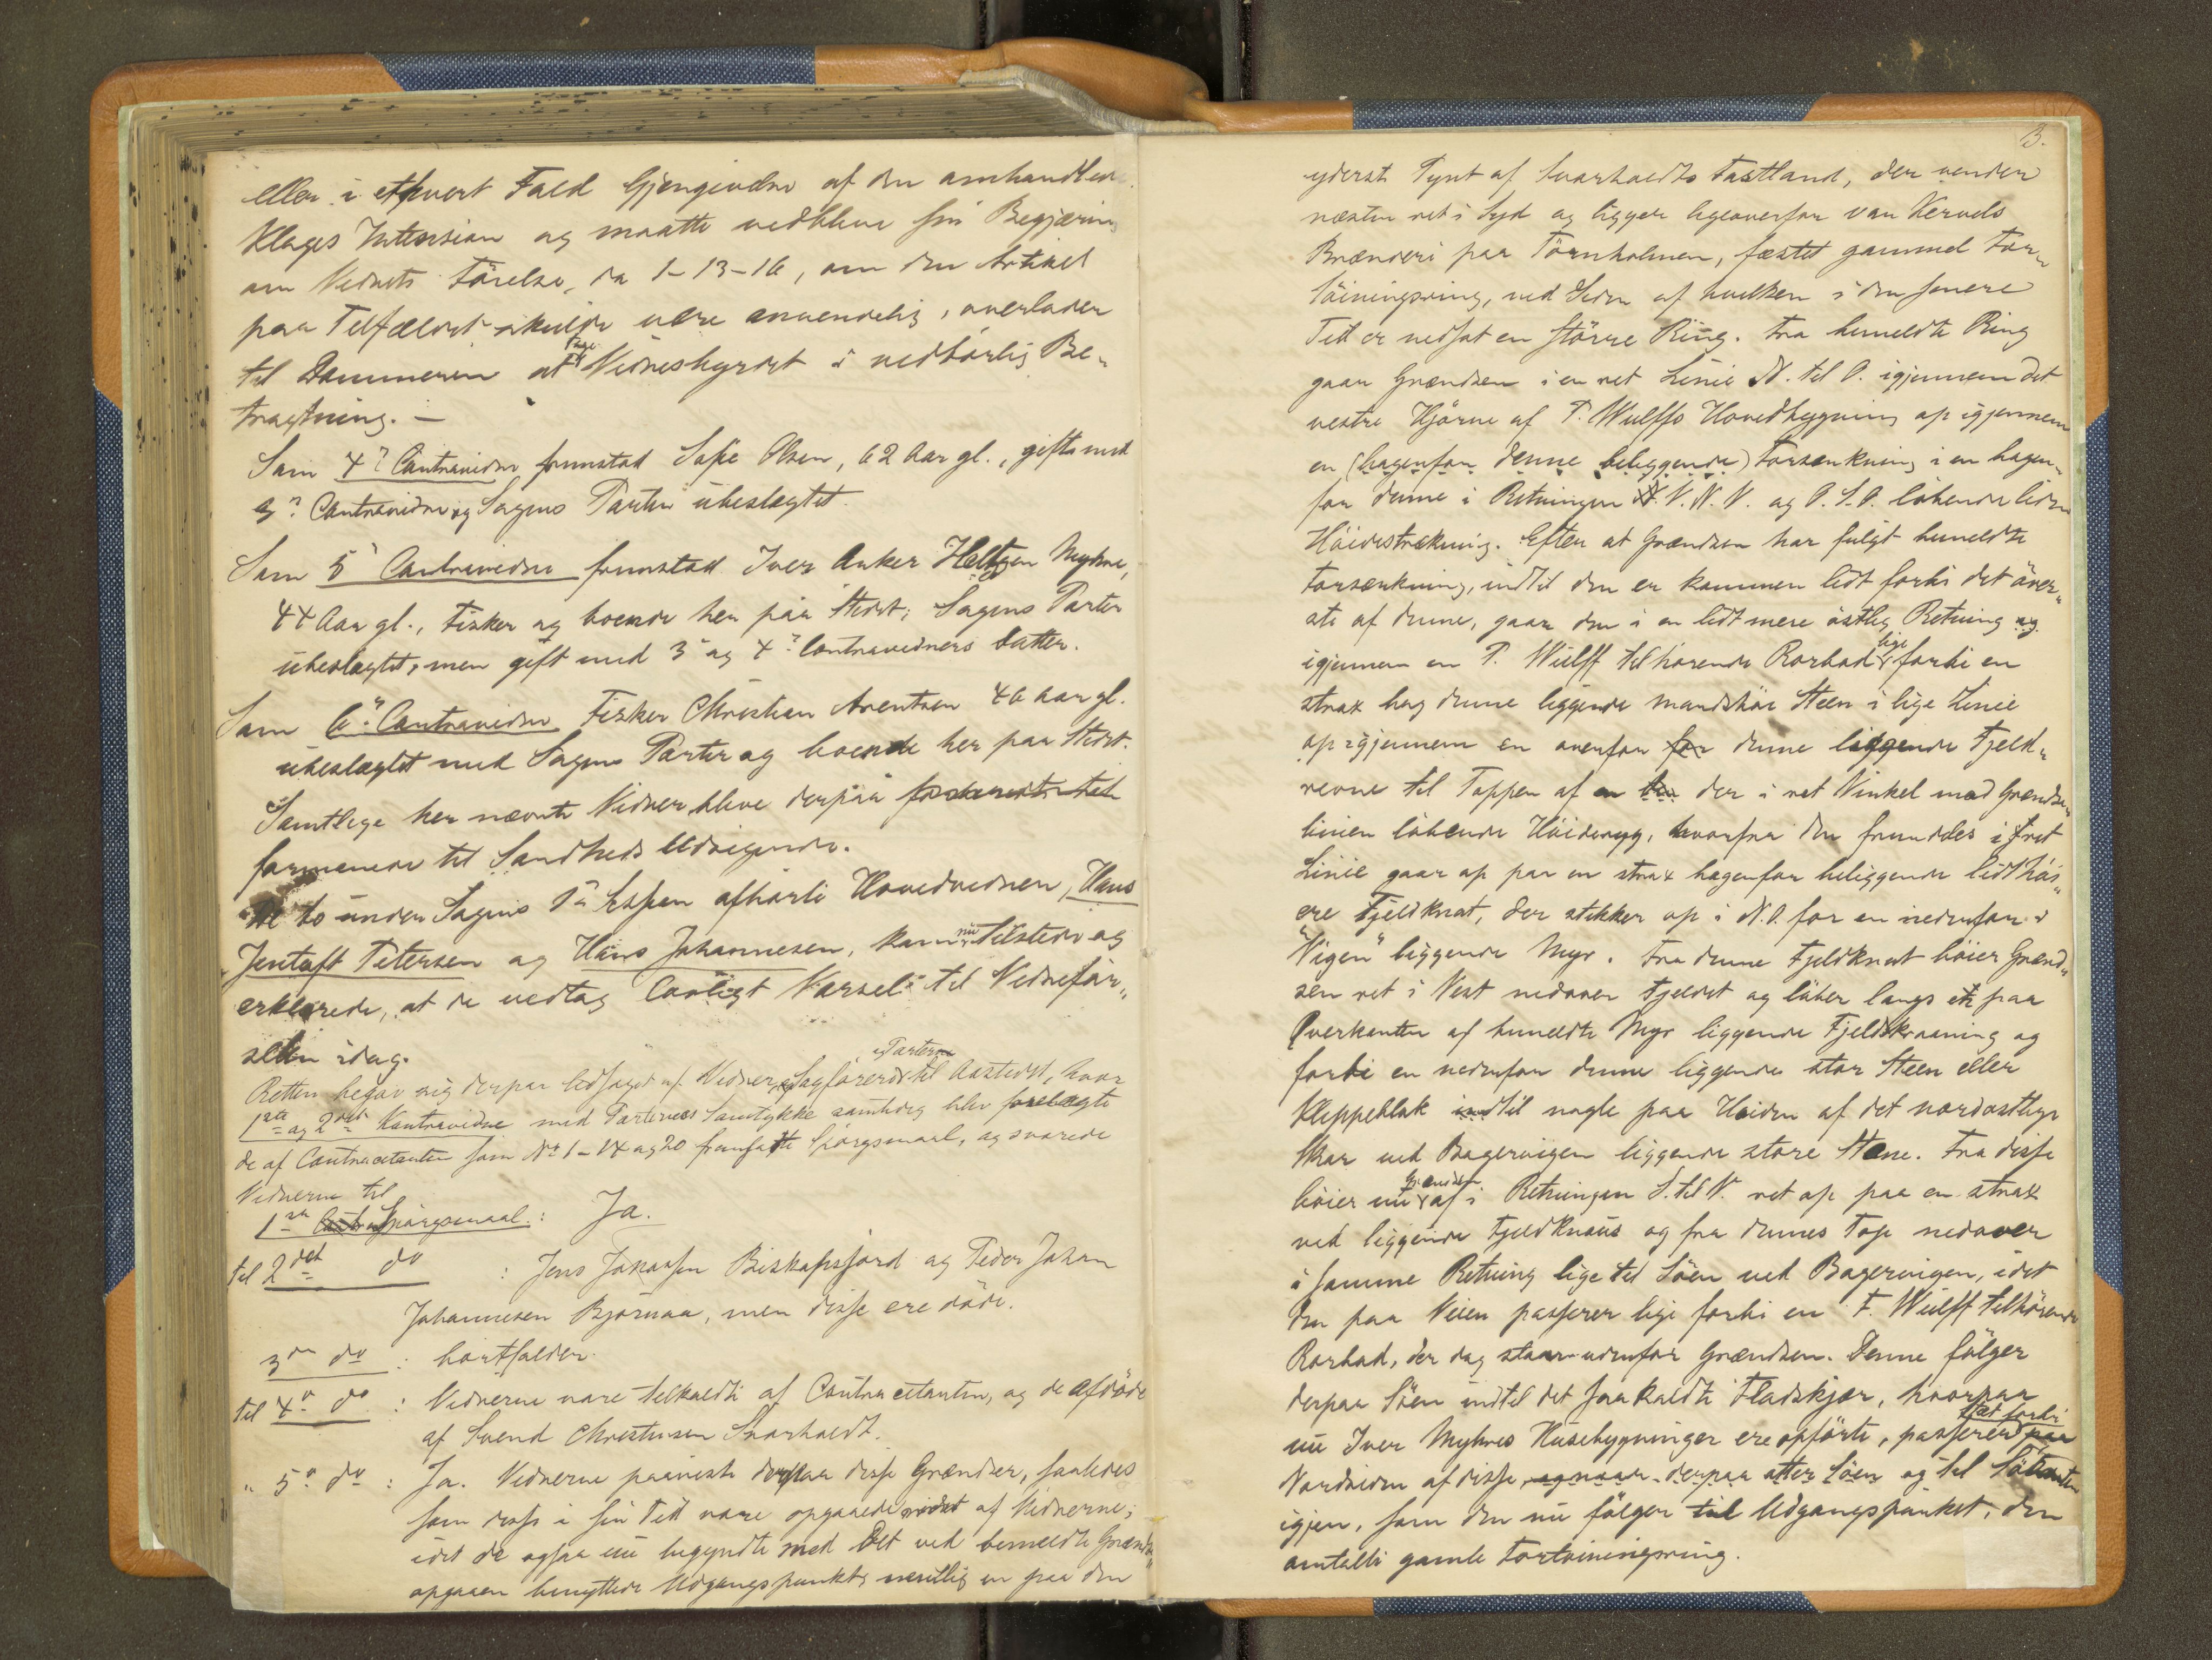 eller i ethvert Fald Gjengivelse af den omhandlede
Klages Intension og maatte vedblive sin Begjæring
om Vidnets Førelse, da 1-13-16, om den Artikel
paa Tilfældet skulde være anvendelig, overlader
til Dommeren at tage Vidnesbyrdet i vedbørlig Be-
tragtning. –
Som 4de Contravidne fremstod Sofie Olsen, 62 Aar gl., gift med
3die Contravidne og Sagens Parter ubeslægtet.
Som 5te Contravidne fremstod Iver Anker Heltzen Myhre,
44 Aar gl., Fisker og boende her paa Stedet; Sagens Parter
ubeslægtet, men gift med 3die og 4de Contravidners Datter.
Som 6te Contravidne Fisker Christian Arentsen 46 Aar gl.
ubeslægtet med Sagens Parter og boende her paa Stedet.
Samtlige her nævnte Vidner bleve derpaa
formanede til Sandheds Udsigende.
De to under Sagens 1ste Extra afhørte Hovedvidner, Hans
Jentoft Petersen og Hans Johannesen, kom nu tilstede og
erklærede, at de vedtog Lovligt Varsel til Vidnefør-
selen idag.
Retten begav sig derpaa ledsaget af Vidner, Sagførere og Parterne til Aastedet, hvor
1ste og 2det Kontravidne med Parternes Samtykke samtidig blev forelagte
de af Contracitanten som No 1-14 og 20 fremsatte Spørgsmaal, og svarede
Vidnerne til
1ste Spørgsmaal: Ja.
til 2det do : Jens Jakobsen Biskopsfjord og Peder Johan
Johannesen Bjørnaa, men disse ere døde.
3die do : bortfalder.
til 4de do : Vidnerne vare tilkaldte af Contracitanten, og de Afdøde
af Svend Christensen Svarholdt.
" 5te do : Ja. Vidnerne paaviste derpaa disse Grændser, saaledes
som disse i sin Tid vare opgaaede af Vidnerne;
idet de ogsaa nu begyndte med Det ved bemeldte Grænse-
opgaaen benyttede Udgangspunkt, nemlig en paa den
3.
yderste Pynt af Svarholdts Fastland, der vender
næsten ret i Syd og ligger ligeoverfor van Kervels
Brænderi paa Tørnholmen, fæstet gammel For-
tøiningsring, ved Siden af hvilken i den senere
Tid er nedsat en større Ring. Fra bemeldte Ring
gaar Grændsen i en ret Linie N. til O. igjennem det
vestre Hjørne af P. Wulffs Hovedbygning op igjennem
en (bagenfor denne beliggende) Forsænkning i en bagen-
for denne i Retningen V.N.V. og O.S.O. løbende liden
Høidestrækning. Efter at Grændsen har fulgt bemeldte
Forsænkning, indtil den er kommen lidt forbi det øver-
ste af denne, gaar den i en lidt mere østlig Retning og
igjennem en P. Wulff tilhørende Rorbod lige forbi en
strax bag denne liggende mandshøi Steen i lige Linie
op igjennem en ovenfor denne liggende Fjeld-
revne til Toppen af en der i ret Vinkel med Grændse-
linien løbende Høideryg, hvorfra den fremdeles i ret
Linie gaar op paa en strax bagenfor beliggende lidt høi-
ere Fjeldknat, der stikker op i N.O. for en nedenfor i
"Vigen" liggende Myr. Fra denne Fjeldknat bøier Grænd-
sen ret i Vest nedover Fjeldet og løber langs et paa
Overkanten af bemeldte Myr liggende Fjeldskraaning og
forbi en nedenfor denne liggende stor Steen eller
Kleppeblok indtil nogle paa Høiden af det nordostlige
Skar ved Bagervigen liggende store Stene. Fra disse
bøier nu Grændsen af i Retningen S. til V. ret op paa en strax
ved liggende Fjeldknaus og fra dennes Top nedover
i samme Retning lige til Søen ved Bagervigen, idet
den paa Veien passerer lige forbi en P. Wulff tilhørende
Rorbod, der dog staar udenfor Grændsen. Denne følger
derpaa Søen indtil det saakaldte Fladskjær, hvorpaa
nu Iver Myhres Husebygninger ere opførte, passerer tæt forbi
Nordsiden af disse og naar derpaa atter Søen og til Søkanten
igjen, som den nu følger til Udgangspunktet, den
omtalte gamle Fortøiningsring.